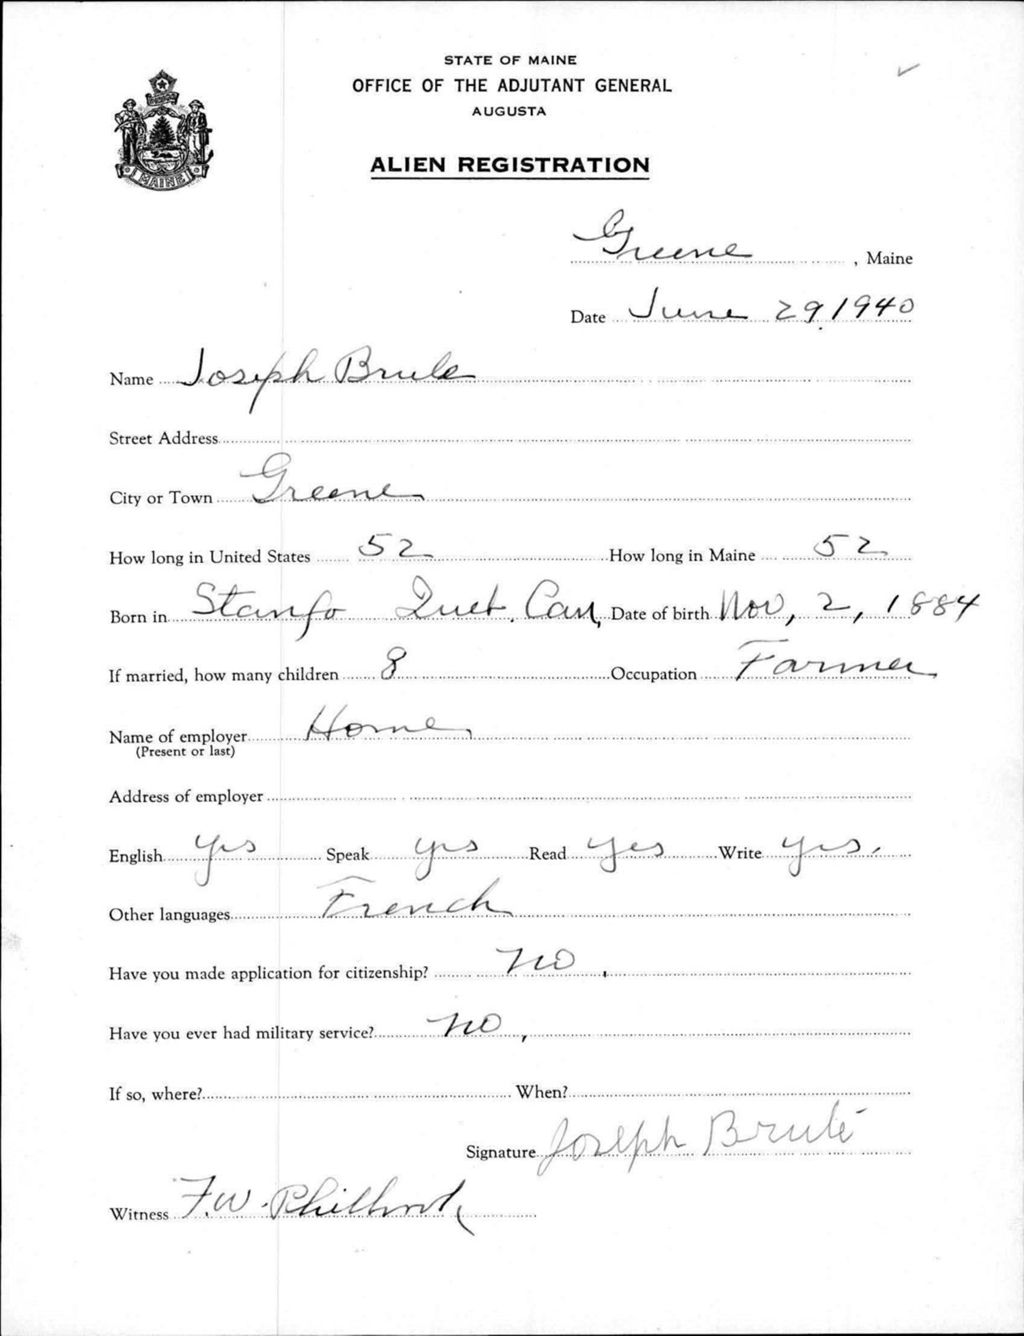 STATE OF MAINE
OFFICE OF THE ADJUTANT GENERAL
AUGUSTA
ALIEN REGISTRATION
MAINE
Greene, Maine
Date June 29, 1940
Name Joseph Brule
Street Address
City or Town Greene
How long in United States 52 How long in Maine 52
Born in Stanfo Queb. Can, Date of birth Nov, 2, 1884
If married, how many children 8 Occupation Farmer
Name of employer Home,
(Present or last)
Address of employer
English yes Speak yes Read yes Write yes.
Other languages French
Have you made application for citizenship? no,
Have you ever had military service? no,
If so, where? When?
Signature Joseph Brulé
Witness F.W. Philbrook